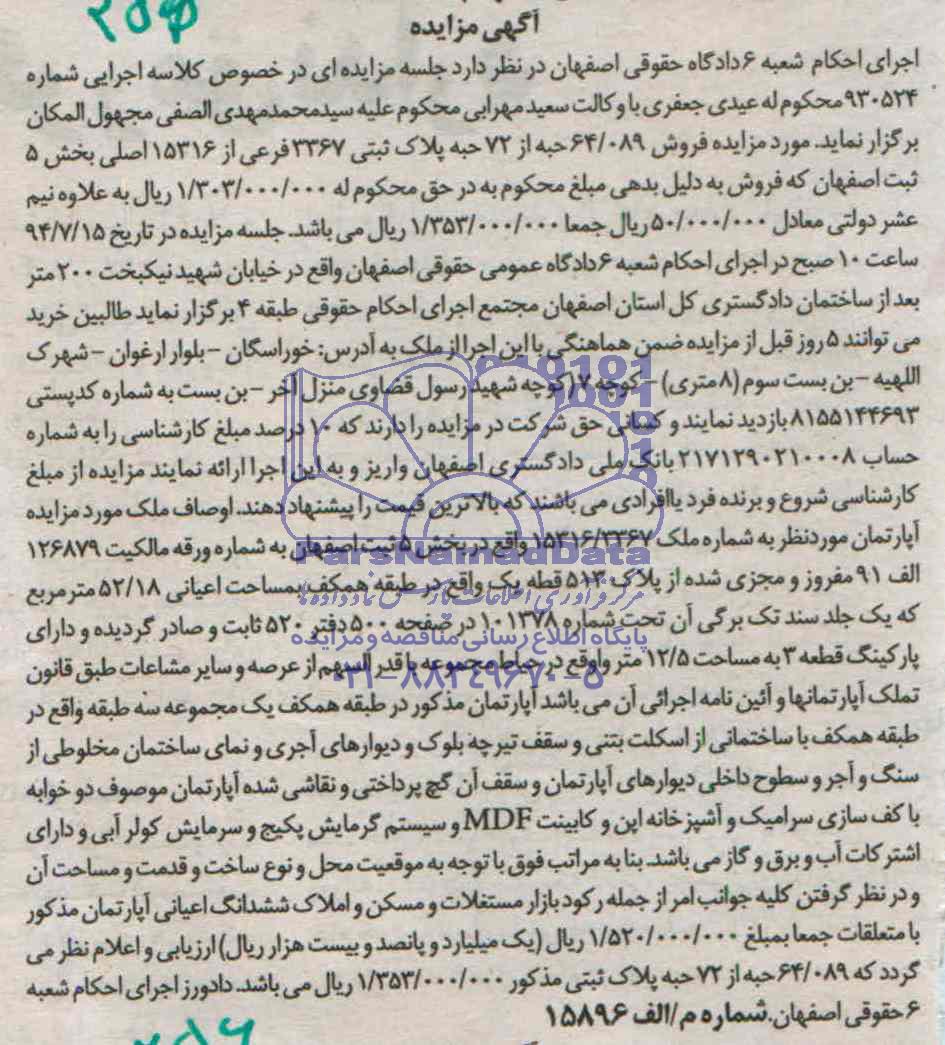 ۲۵۶
آگهی مزایده
اجرای احکام شعبه ۶ دادگاه حقوقی اصفهان در نظر دارد جلسه مزایده ای در خصوص کلاسه اجرایی شماره
۹۳۰۵۲۴ محکوم له عیدی جعفری با وکالت سعید مهرابی محکوم علیه سیدمحمدمهدی الصفی مجهول المکان
برگزار نماید. مورد مزایده فروش ۶۴/۰۸۹ حبه از ۷۲ حبه پلاک ثبتی ۳۳۶۷ فرعی از ۱۵۳۱۶ اصلی بخش ۵
ثبت اصفهان که فروش به دلیل بدهی مبلغ محکوم به در حق محکوم له ۱/۳۰۳/۰۰۰/۰۰۰ ریال به علاوه نیم
عشر دولتی معادل ۵۰/۰۰۰/۰۰۰ ریال جمعا ۱/۳۵۳/۰۰۰/۰۰۰ ریال می باشد. جلسه مزایده در تاریخ ۹۴/۷/۱۵
ساعت ۱۰ صبح در اجرای احکام شعبه ۶ دادگاه عمومی حقوقی اصفهان واقع در خیابان شهید نیکبخت ۲۰۰ متر
بعد از ساختمان دادگستری کل استان اصفهان مجتمع اجرای احکام حقوقی طبقه ۴ برگزار نماید طالبین خرید
می توانند ۵ روز قبل از مزایده ضمن هماهنگی با این اجرا از ملک به آدرس: خوراسگان - بلوار ارغوان - شهرک
اللهیه - بن بست سوم (۸ متری) - کوچه ۷ (کوچه شهید رسول قضاوی منزل آخر - بن بست به شماره کدپستی
۸۱۵۵۱۴۴۶۹۳ بازدید نمایند و کسانی حق شرکت در مزایده را دارند که ۱۰ درصد مبلغ کارشناسی را به شماره
حساب ۲۱۷۱۲۹۰۲۱۰۰۰۸ بانک ملی دادگستری اصفهان واریز و به این اجرا ارائه نمایند مزایده از مبلغ
کارشناسی شروع و برنده فرد یا افرادی می باشند که بالاترین قیمت را پیشنهاد دهند. اوصاف ملک مورد مزایده
آپارتمان موردنظر به شماره ملک ۱۵۳۱۶/۳۳۶۷ واقع در بخش ۵ ثبت اصفهان به شماره ورقه مالکیت ۱۲۶۸۷۹
ParsNamadData
الف ۹۱ مفروز و مجزی شده از پلاک ۵۱۳ قطه یک واقع در طبقه همکف بمساحت اعیانی ۵۲/۱۸ مترمربع
مرکز فرآوری اطلاعات پارس نماد داده ها
که یک جلد سند تک برگی آن تحت شماره ۱۰۱۳۷۸ در صفحه ۵۰۰ دفتر ۵۲۰ ثابت و صادر گردیده و دارای
پایگاه اطلاع رسانی مناقصه و مزایده
پارکینگ قطعه ۳ به مساحت ۱۲/۵ متر واقع در حیاط مجموعه با قدر السهم از عرصه و سایر مشاعات طبق قانون
۰۲۱-۸۸۳۴۹۶۷۰-۵
تملک آپارتمانها و آئین نامه اجرائی آن می باشد آپارتمان مذکور در طبقه همکف یک مجموعه سه طبقه واقع در
طبقه همکف با ساختمانی از اسکلت بتنی و سقف تیرچه بلوک و دیوارهای آجری و نمای ساختمان مخلوطی از
سنگ و آجر و سطوح داخلی دیوارهای آپارتمان و سقف آن گچ پرداختی و نقاشی شده آپارتمان موصوف دو خوابه
با کف سازی سرامیک و آشپزخانه اپن و کابینت MDF و سیستم گرمایش پکیج و سرمایش کولر آبی و دارای
اشترکات آب و برق و گاز می باشد. بنا به مراتب فوق با توجه به موقعیت محل و نوع ساخت و قدمت و مساحت آن
و در نظر گرفتن کلیه جوانب امر از جمله رکود بازار مستغلات و مسکن و املاک ششدانگ اعیانی آپارتمان مذکور
با متعلقات جمعا بمبلغ ۱/۵۲۰/۰۰۰/۰۰۰ ریال (یک میلیارد و پانصد و بیست هزار ریال) ارزیابی و اعلام نظر می
گردد که ۶۴/۰۸۹ حبه از ۷۲ حبه پلاک ثبتی مذکور ۱/۳۵۳/۰۰۰/۰۰۰ ریال می باشد. دادورز اجرای احکام شعبه
۶ حقوقی اصفهان. شماره م/الف ۱۵۸۹۶